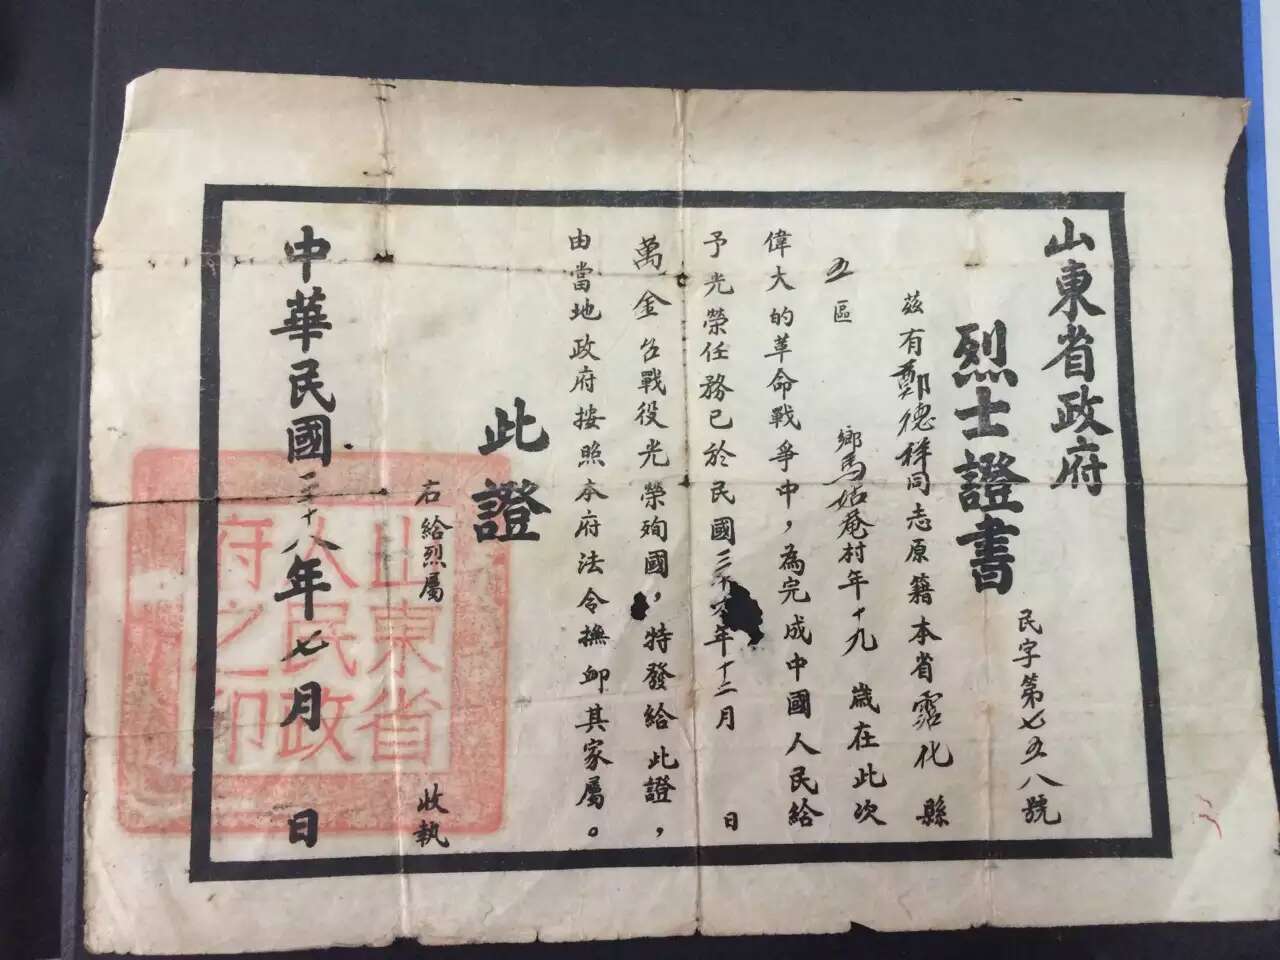 山東省政府
烈士證書
民字第七五八號
茲有鄭德祥同志原籍本省霑化縣
五區 鄉馬姑菴村年十九歲在此次
偉大的革命戰爭中，為完成中國人民給
予光榮任務已於民國三十年十二月 日
萬金台戰役光榮殉國，特發給此證，
由當地政府按照本府法令撫卹其家屬。
此證
右給烈屬 收執
中華民國三十八年七月 日
山東省
人民政
府之印